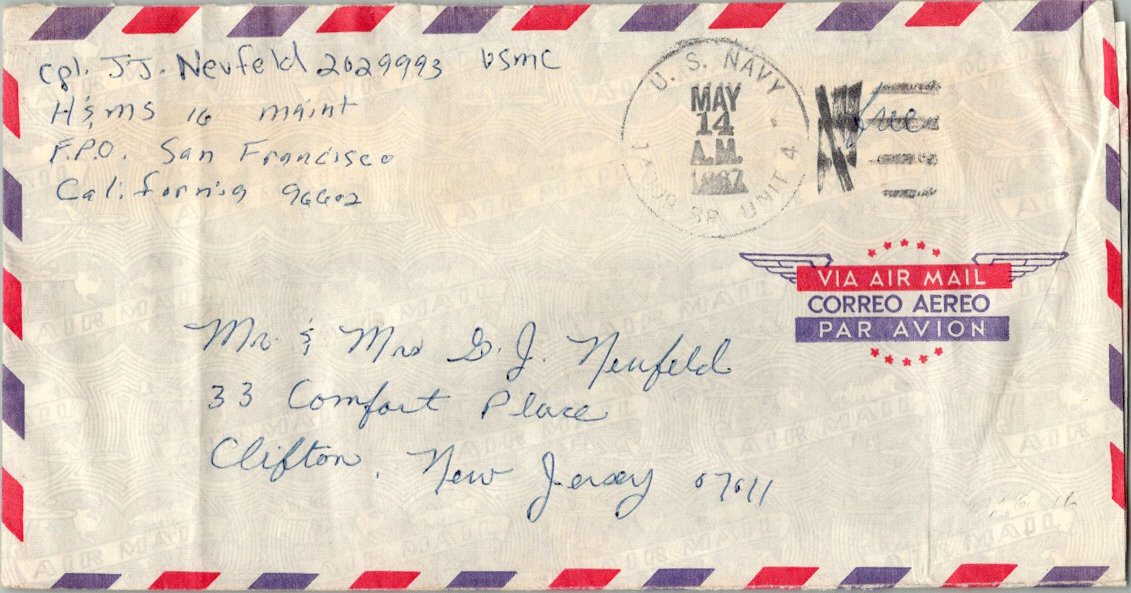 Cpl. J.J. Neufeld 2029993 USMC
H & MS 16 maint
F.P.O. San Francisco
California 96602
U. S. NAVY
MAY
14
A.M.
1967
UNIT 4
Free
VIA AIR MAIL
CORREO AEREO
PAR AVION
Mr. & Mrs G. J. Neufeld
33 Comfort Place
Clifton, New Jersey 07011